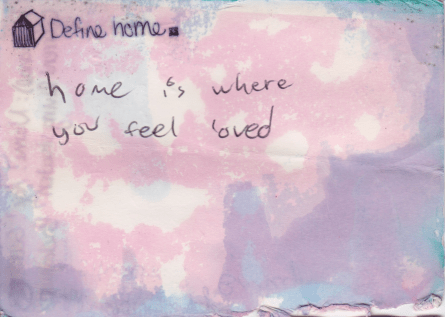 Define home.
home is where
you feel loved